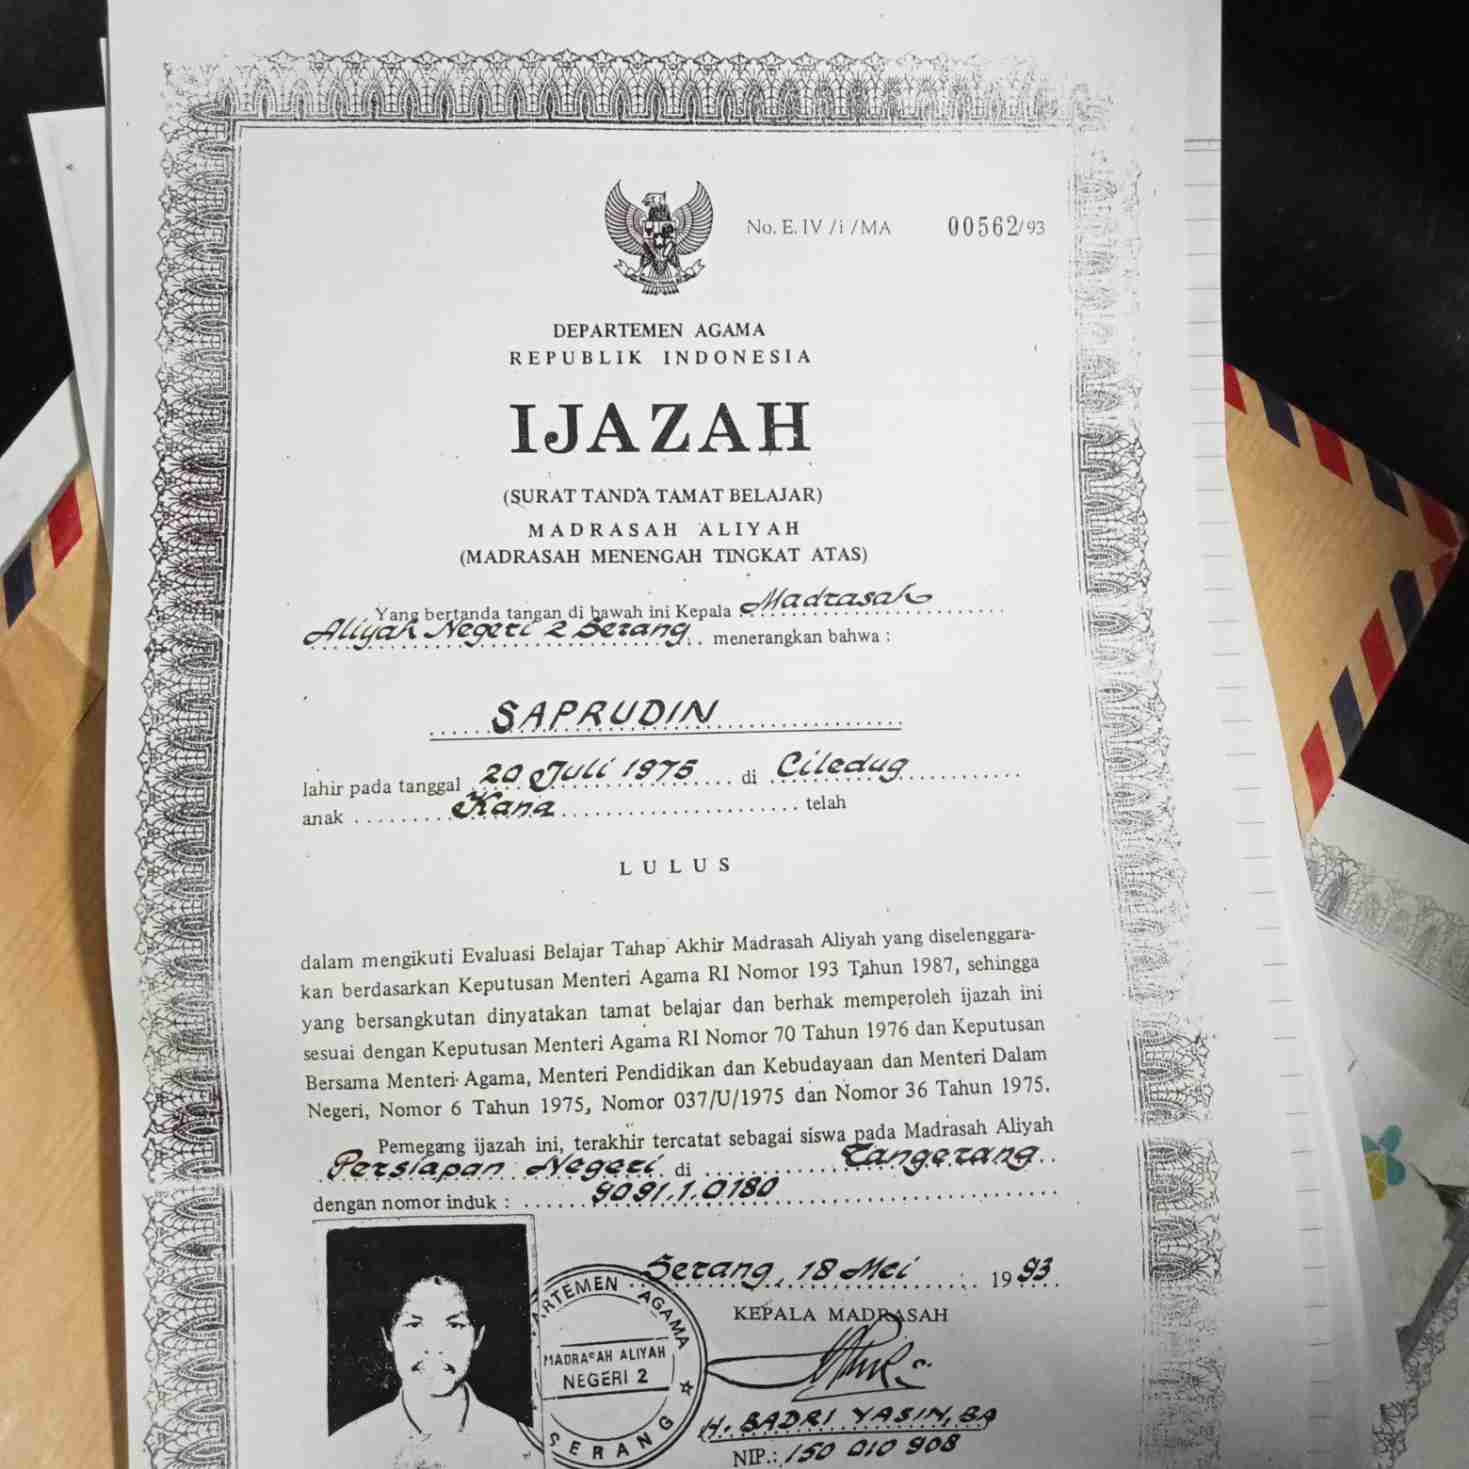 No. E. IV /i /MA 00562/93
DEPARTEMEN AGAMA
REPUBLIK INDONESIA
IJAZAH
(SURAT TANDA TAMAT BELAJAR)
MADRASAH ALIYAH
(MADRASAH MENENGAH TINGKAT ATAS)
Yang bertanda tangan di bawah ini Kepala Madrasah
Aliyah Negeri 2 Serang menerangkan bahwa :
SAPRUDIN
lahir pada tanggal 20 Juli 1975 di Ciledug
anak Kana telah
LULUS
dalam mengikuti Evaluasi Belajar Tahap Akhir Madrasah Aliyah yang diselenggara-
kan berdasarkan Keputusan Menteri Agama RI Nomor 193 Tahun 1987, sehingga
yang bersangkutan dinyatakan tamat belajar dan berhak memperoleh ijazah ini
sesuai dengan Keputusan Menteri Agama RI Nomor 70 Tahun 1976 dan Keputusan
Bersama Menteri Agama, Menteri Pendidikan dan Kebudayaan dan Menteri Dalam
Negeri, Nomor 6 Tahun 1975, Nomor 037/U/1975 dan Nomor 36 Tahun 1975.
Pemegang ijazah ini, terakhir tercatat sebagai siswa pada Madrasah Aliyah
Persiapan Negeri di Tangerang
dengan nomor induk : 9091.1.0180
Serang, 18 Mei 1993
KEPALA MADRASAH
ARTEMEN AGAMA
MADRASAH ALIYAH
NEGERI 2
SERANG
H. BADRI YASIN, BA
NIP.: 150 010 908